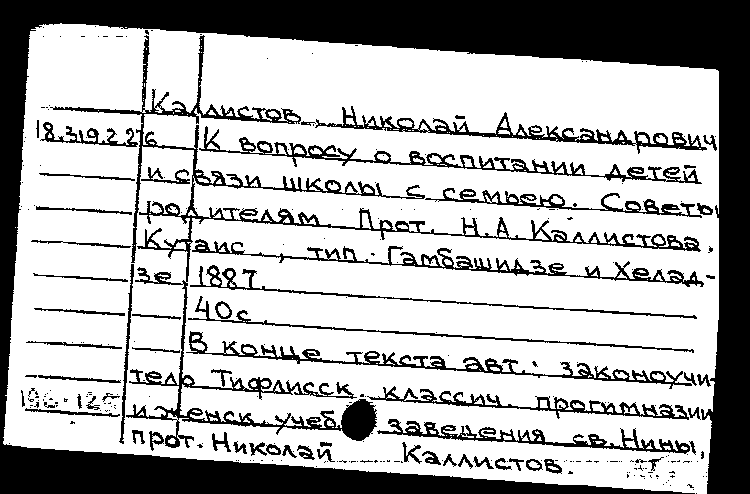 Каллистов, Николай Александрович
18.319.2.276 К вопросу о воспитании детей
и связи школы с семьею. Советы
родителям Прот. Н.А. Каллистова.
Кутаис, тип. Гамбашидзе и Хелад-
зе, 1887.
40с.
В конце текста авт.: законоучи-
тель Тифлисск. классич. прогимназии
и женск. учеб. заведения св. Нины,
прот. Николай Каллистов.